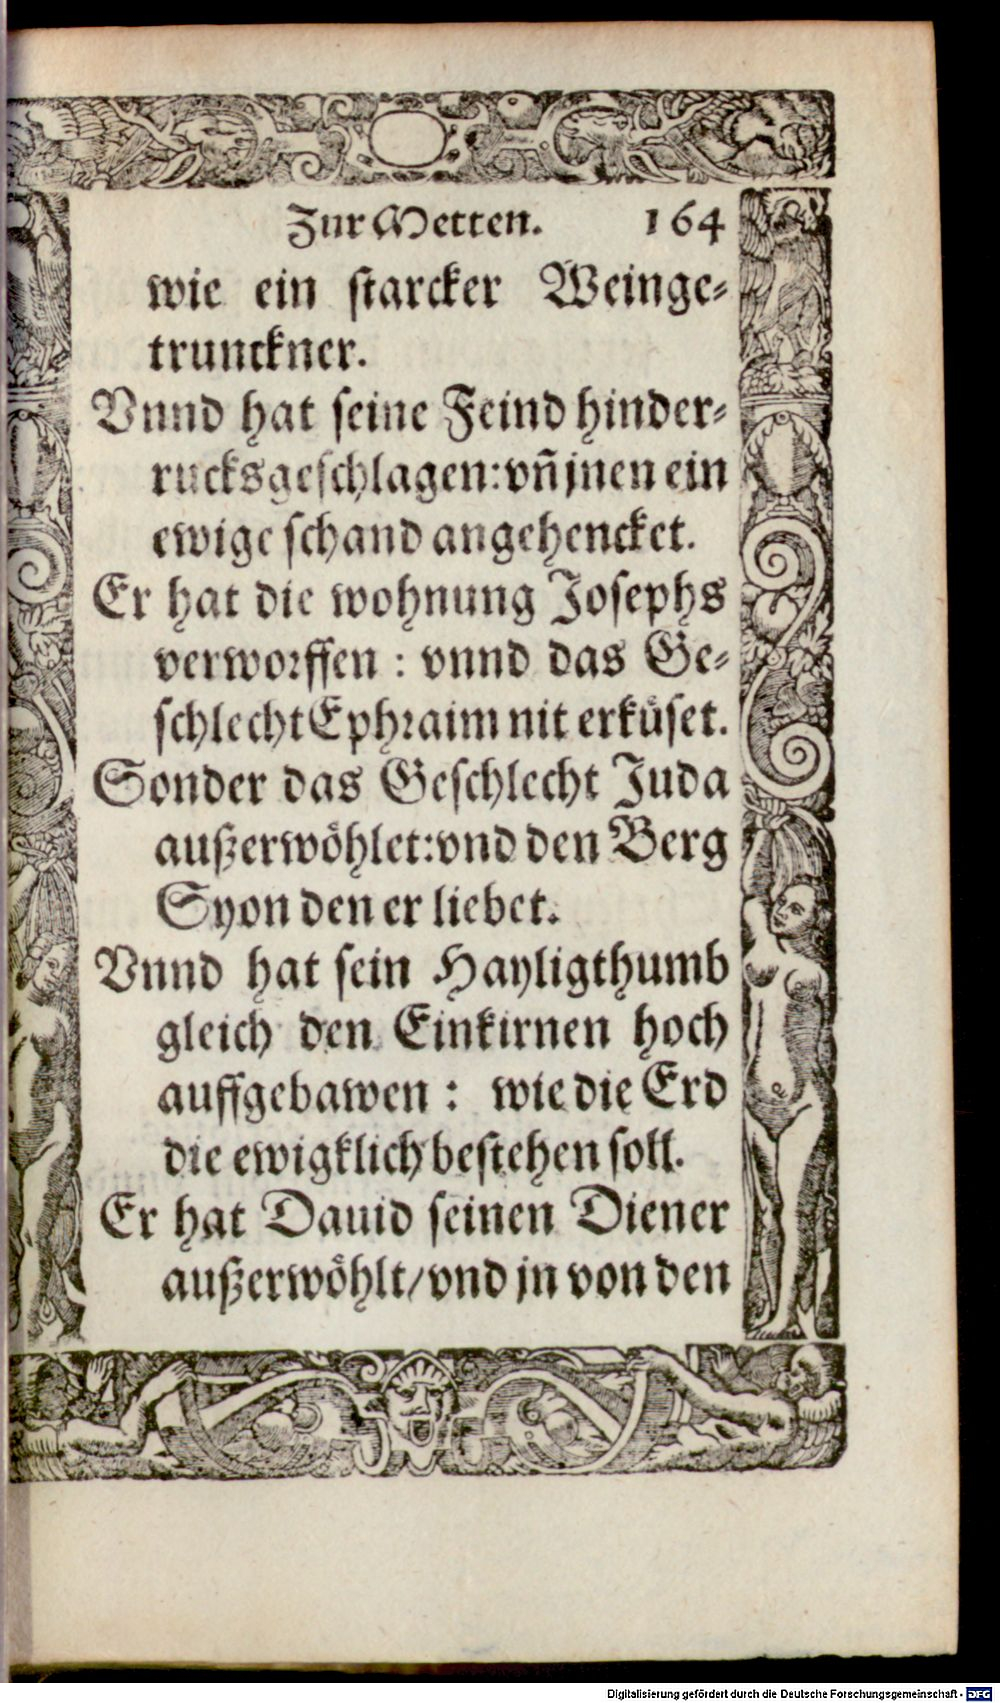 Zur Metten. 164
wie ein starcker Weinge-
trunckner.
Vnnd hat seine Feind hinder-
rucksgeschlagen: vñ jnen ein
ewige schand angehencket.
Er hat die wohnung Josephs
verworffen : vnnd das Ge-
schlecht Ephraim nit erküset.
Sonder das Geschlecht Juda
außerwöhlet: vnd den Berg
Syon den er liebet.
Vnnd hat sein Hayligthumb
gleich den Einkirnen hoch
auffgebawen : wie die Erd
die ewigklich bestehen soll.
Er hat Dauid seinen Diener
außerwöhlt/ vnd jn von den
Digitalisierung gefördert durch die Deutsche Forschungsgemeinschaft - DFG